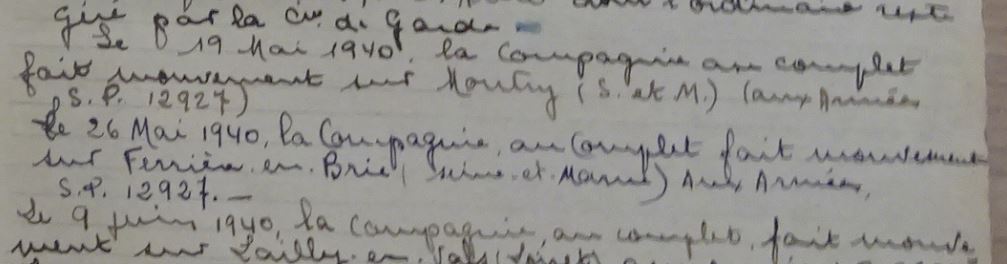 géré par la Cie. de Garde
Le 19 Mai 1940, la Compagnie au complet
fait mouvement sur Montry (S. et M.) (aux Armées
S.P. 12927)
Le 26 Mai 1940, la Compagnie, au Complet fait mouvement
sur Ferrière. en. Brie (Seine. et. Marne) Aux Armées,
S.P. 12.927. —
Le 9 juin 1940, la Compagnie, au complet, fait mouve
ment sur Lailly. en. Val (Loiret)